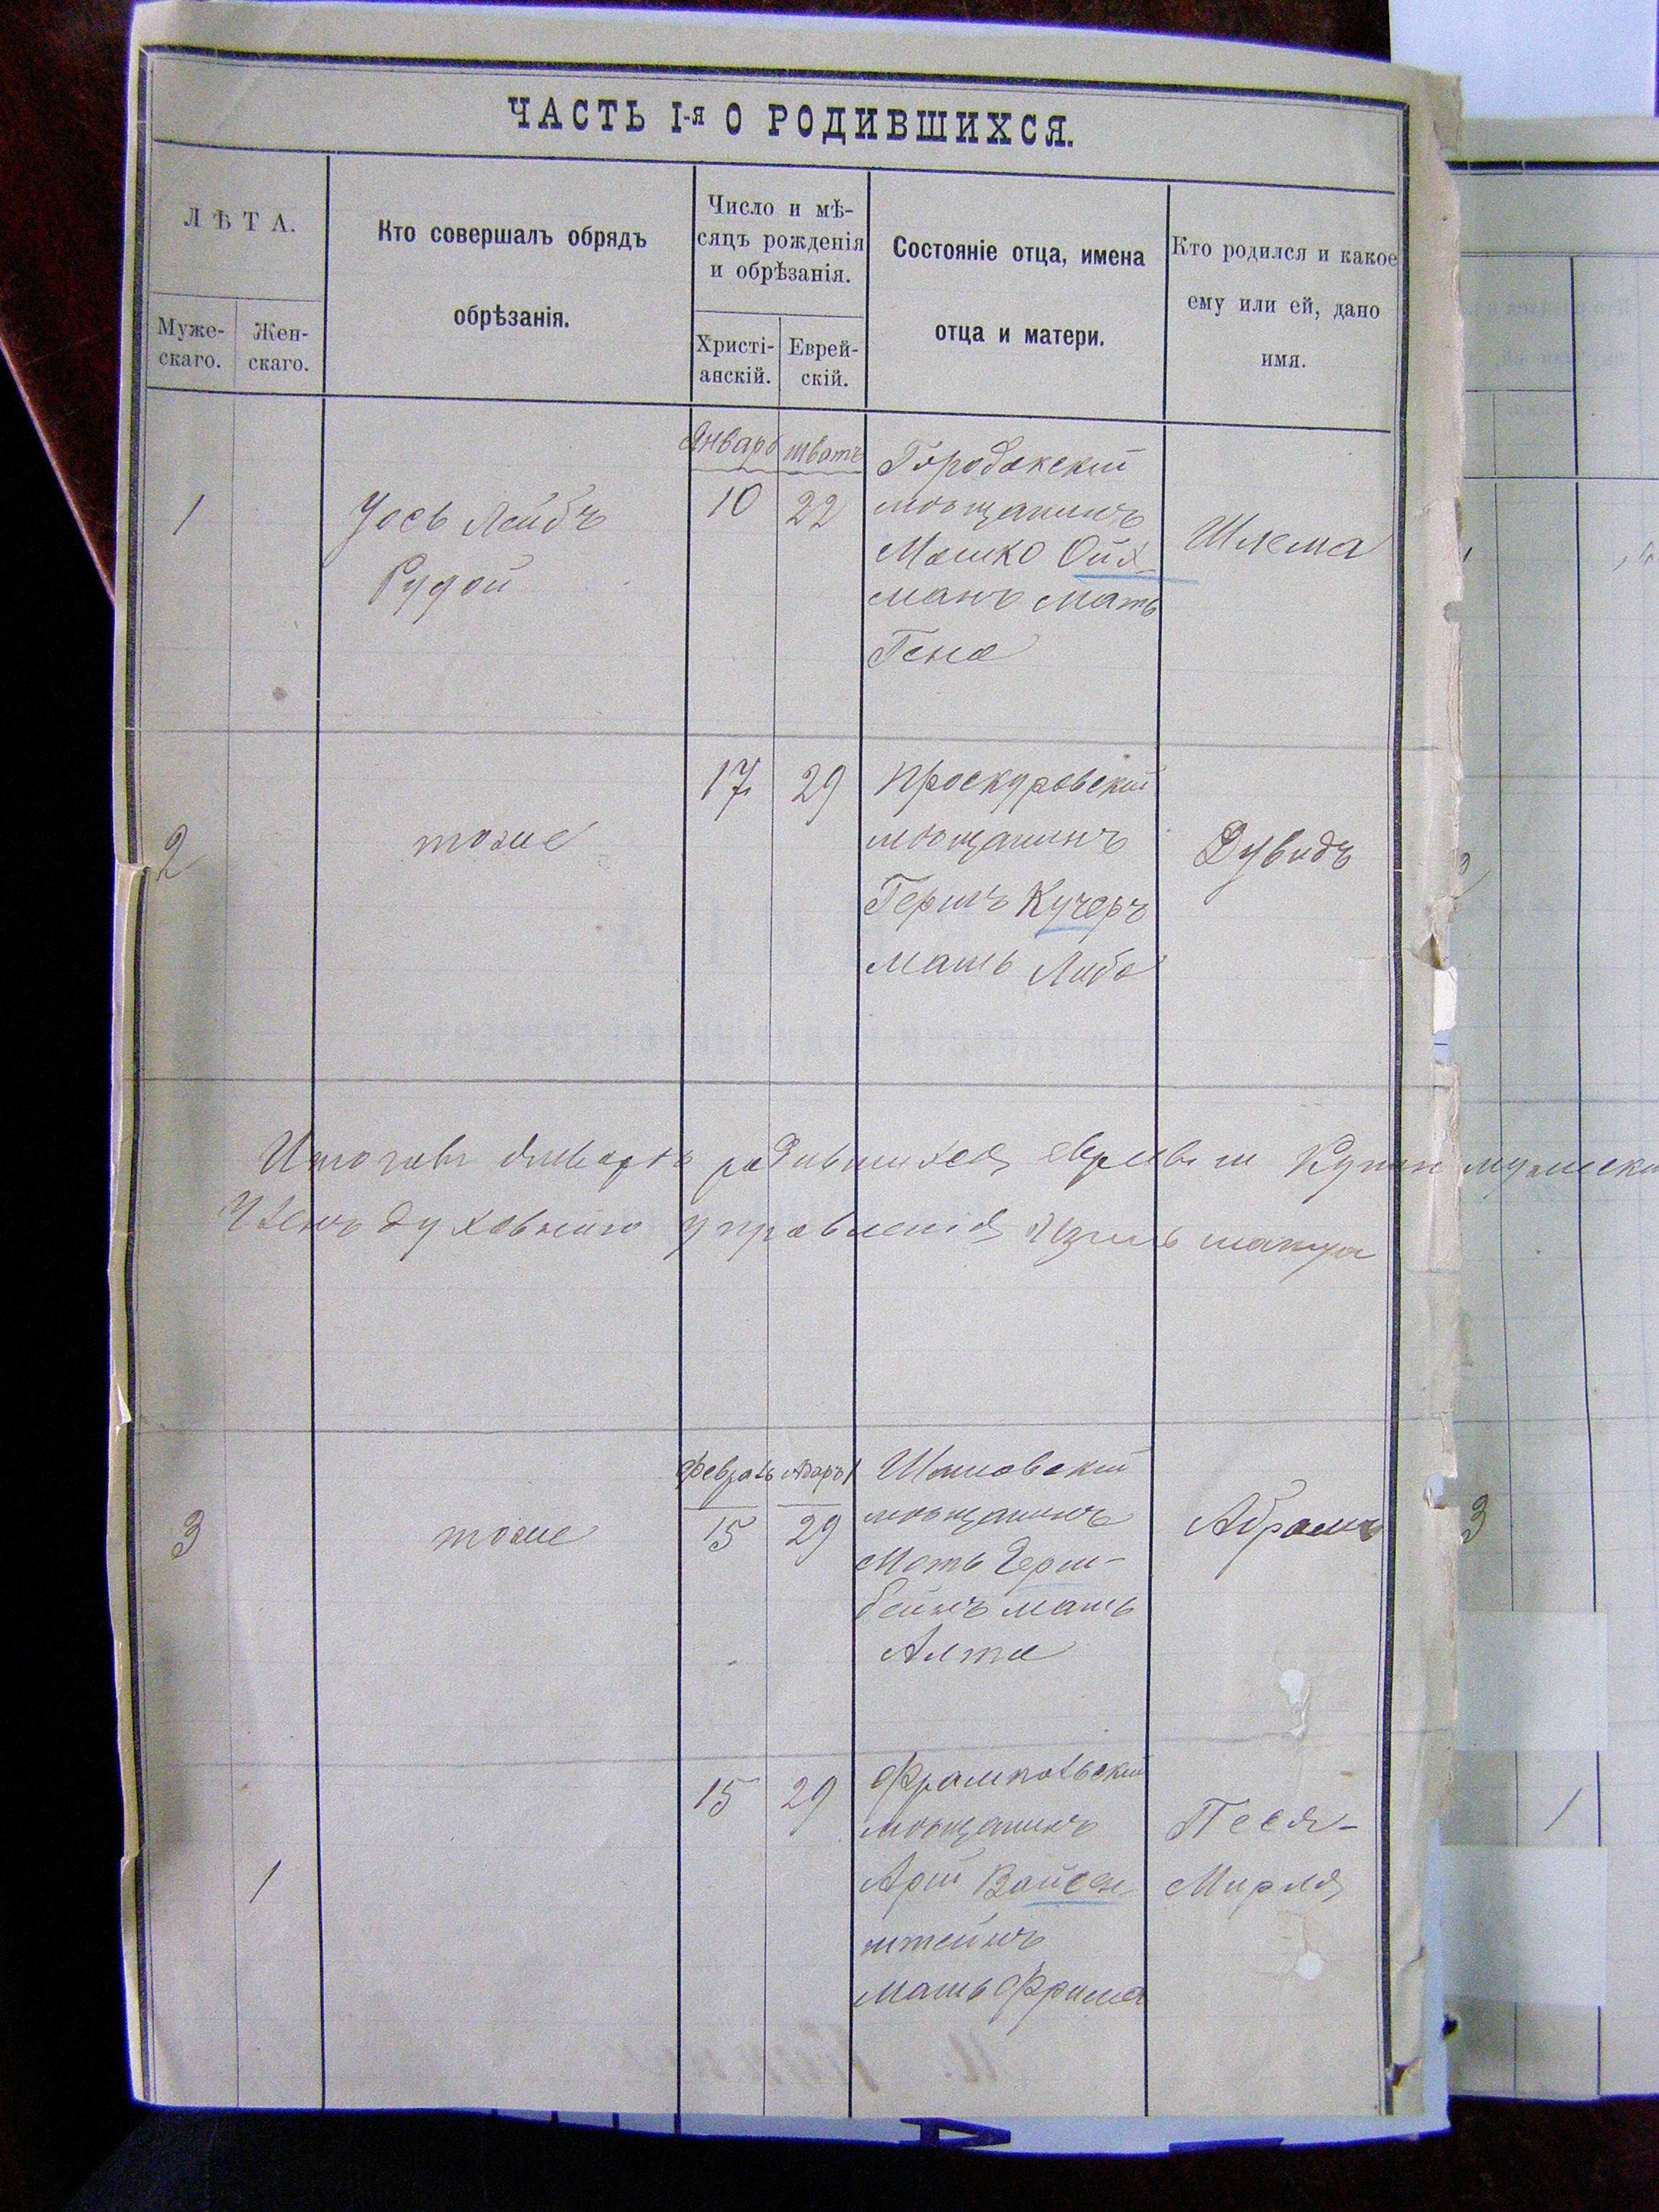 ЧАСТЬ I-я О РОДИВШИХСЯ.
ЛѢТА.
Муже-
скаго.
Жен-
скаго.
Кто совершалъ обрядъ
обрѣзанія.
Число и мѣ-
сяцъ рожденія
и обрѣзанія.
Христі-
анскій.
Еврей-
скій.
Состояніе отца, имена
отца и матери.
Кто родился и какое
ему или ей, дано
имя.
1
Лейбъ
Рудой
Январь
10
22
Городокскій
мѣщанинъ
Мошко
манъ мать
Гена
Шлема
2
тоже
17
29
Проскуровскій
мѣщанинъ
Гершъ Кучеръ
мать Либа
Дувидъ
родившихся
Членъ духовнаго управленія
3
тоже
Февраль Адаръ 1
15
29
мѣщанинъ
бейнъ мать
Алта
Абрамъ
3
1
15
29
Фрампольскій
мѣщанинъ
Арій Вайсен-
штейнъ
мать Фрима
Песя-
Мирля
1